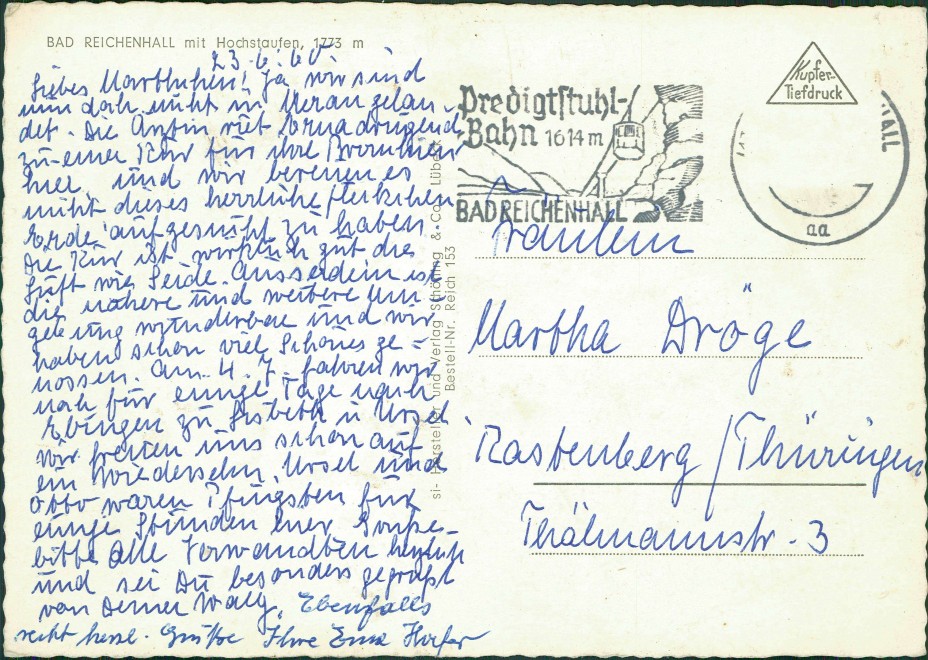 BAD REICHENHALL mit Hochstaufen, 1773 m
23.6.60.
Liebes Marthchen! Ja wir sind
nun doch nicht in Meran gelan-
det. Die Ärztin riet Erna dringend
zu einer Kur für ihre Bronchien
hier, und wir bereuen es
nicht dieses herrliche Fleckchen
Erde aufgesucht zu haben.
Die Kur ist wirklich gut die
Luft wie Seide. Ausserdem ist
die nähere und weitere Um
gebung wunderbar und wir
haben schon viel Schönes ge-
nossen. Am 4. 7. fahren wir
noch für einige Tage nach
Ebingen zu Lisbeth u Ursel
wir freuen uns schon auf
ein Wiedersehn. Ursel und
Otto waren Pfingsten für
einige Stunden hier. Grüße
bitte alle Verwandten herzlich
und sei Du besonders gegrüßt
von Deiner Walg. Ebenfalls
recht herzl. Grüße Ihre Erna
si- Hersteller und Verlag Schöning & Co., Lübeck
Bestell-Nr. Reich 153
Predigtstuhl-
Bahn 1614 m
BAD REICHENHALL
Kupfer-
Tiefdruck
HALL
aa
Fräulein
Martha Dröge
Rastenberg / Thüringen
Thälmannstr. 3